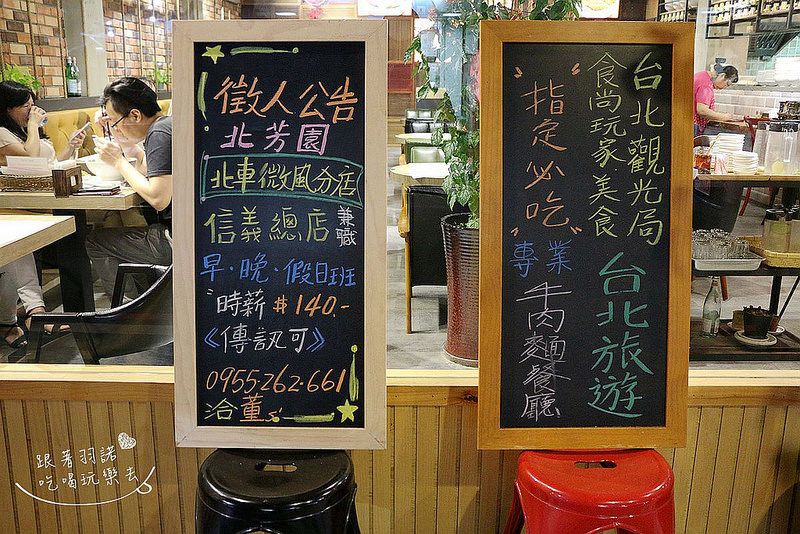 徵人公告
北芳園
北車微風分店
信義總店 兼職
早·晚·假日班
時薪 $140.-
《傳訊可》
0955-262-661
洽董's
台北觀光局
食尚玩家·美食
"指定必吃"
台北旅遊
專業
牛肉麵餐廳
跟著羽諾
吃喝玩樂去